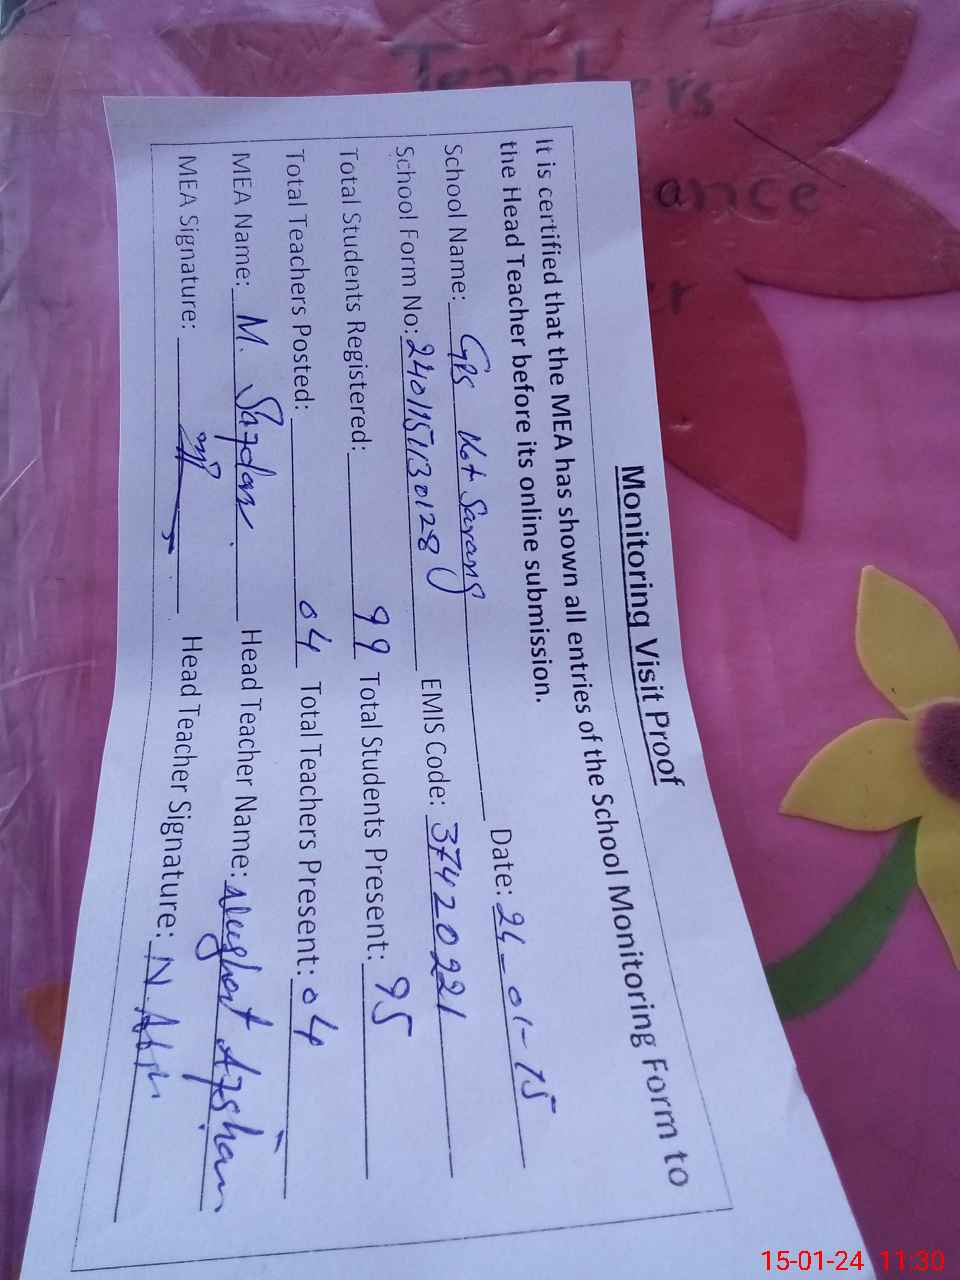 Teachers
Monitoring Visit Proof
It is certified that the MEA has shown all entries of the School Monitoring Form to
the Head Teacher before its online submission.
School Name: GPS Kot Sarang Date: 24-01-15
School Form No: 2401151130128 EMIS Code: 37420221
Total Students Registered: 99 Total Students Present: 95
Total Teachers Posted: 04 Total Teachers Present: 04
MEA Name: M. Head Teacher Name: Nughat
MEA Signature: Head Teacher Signature: N.
15-01-24 11:30